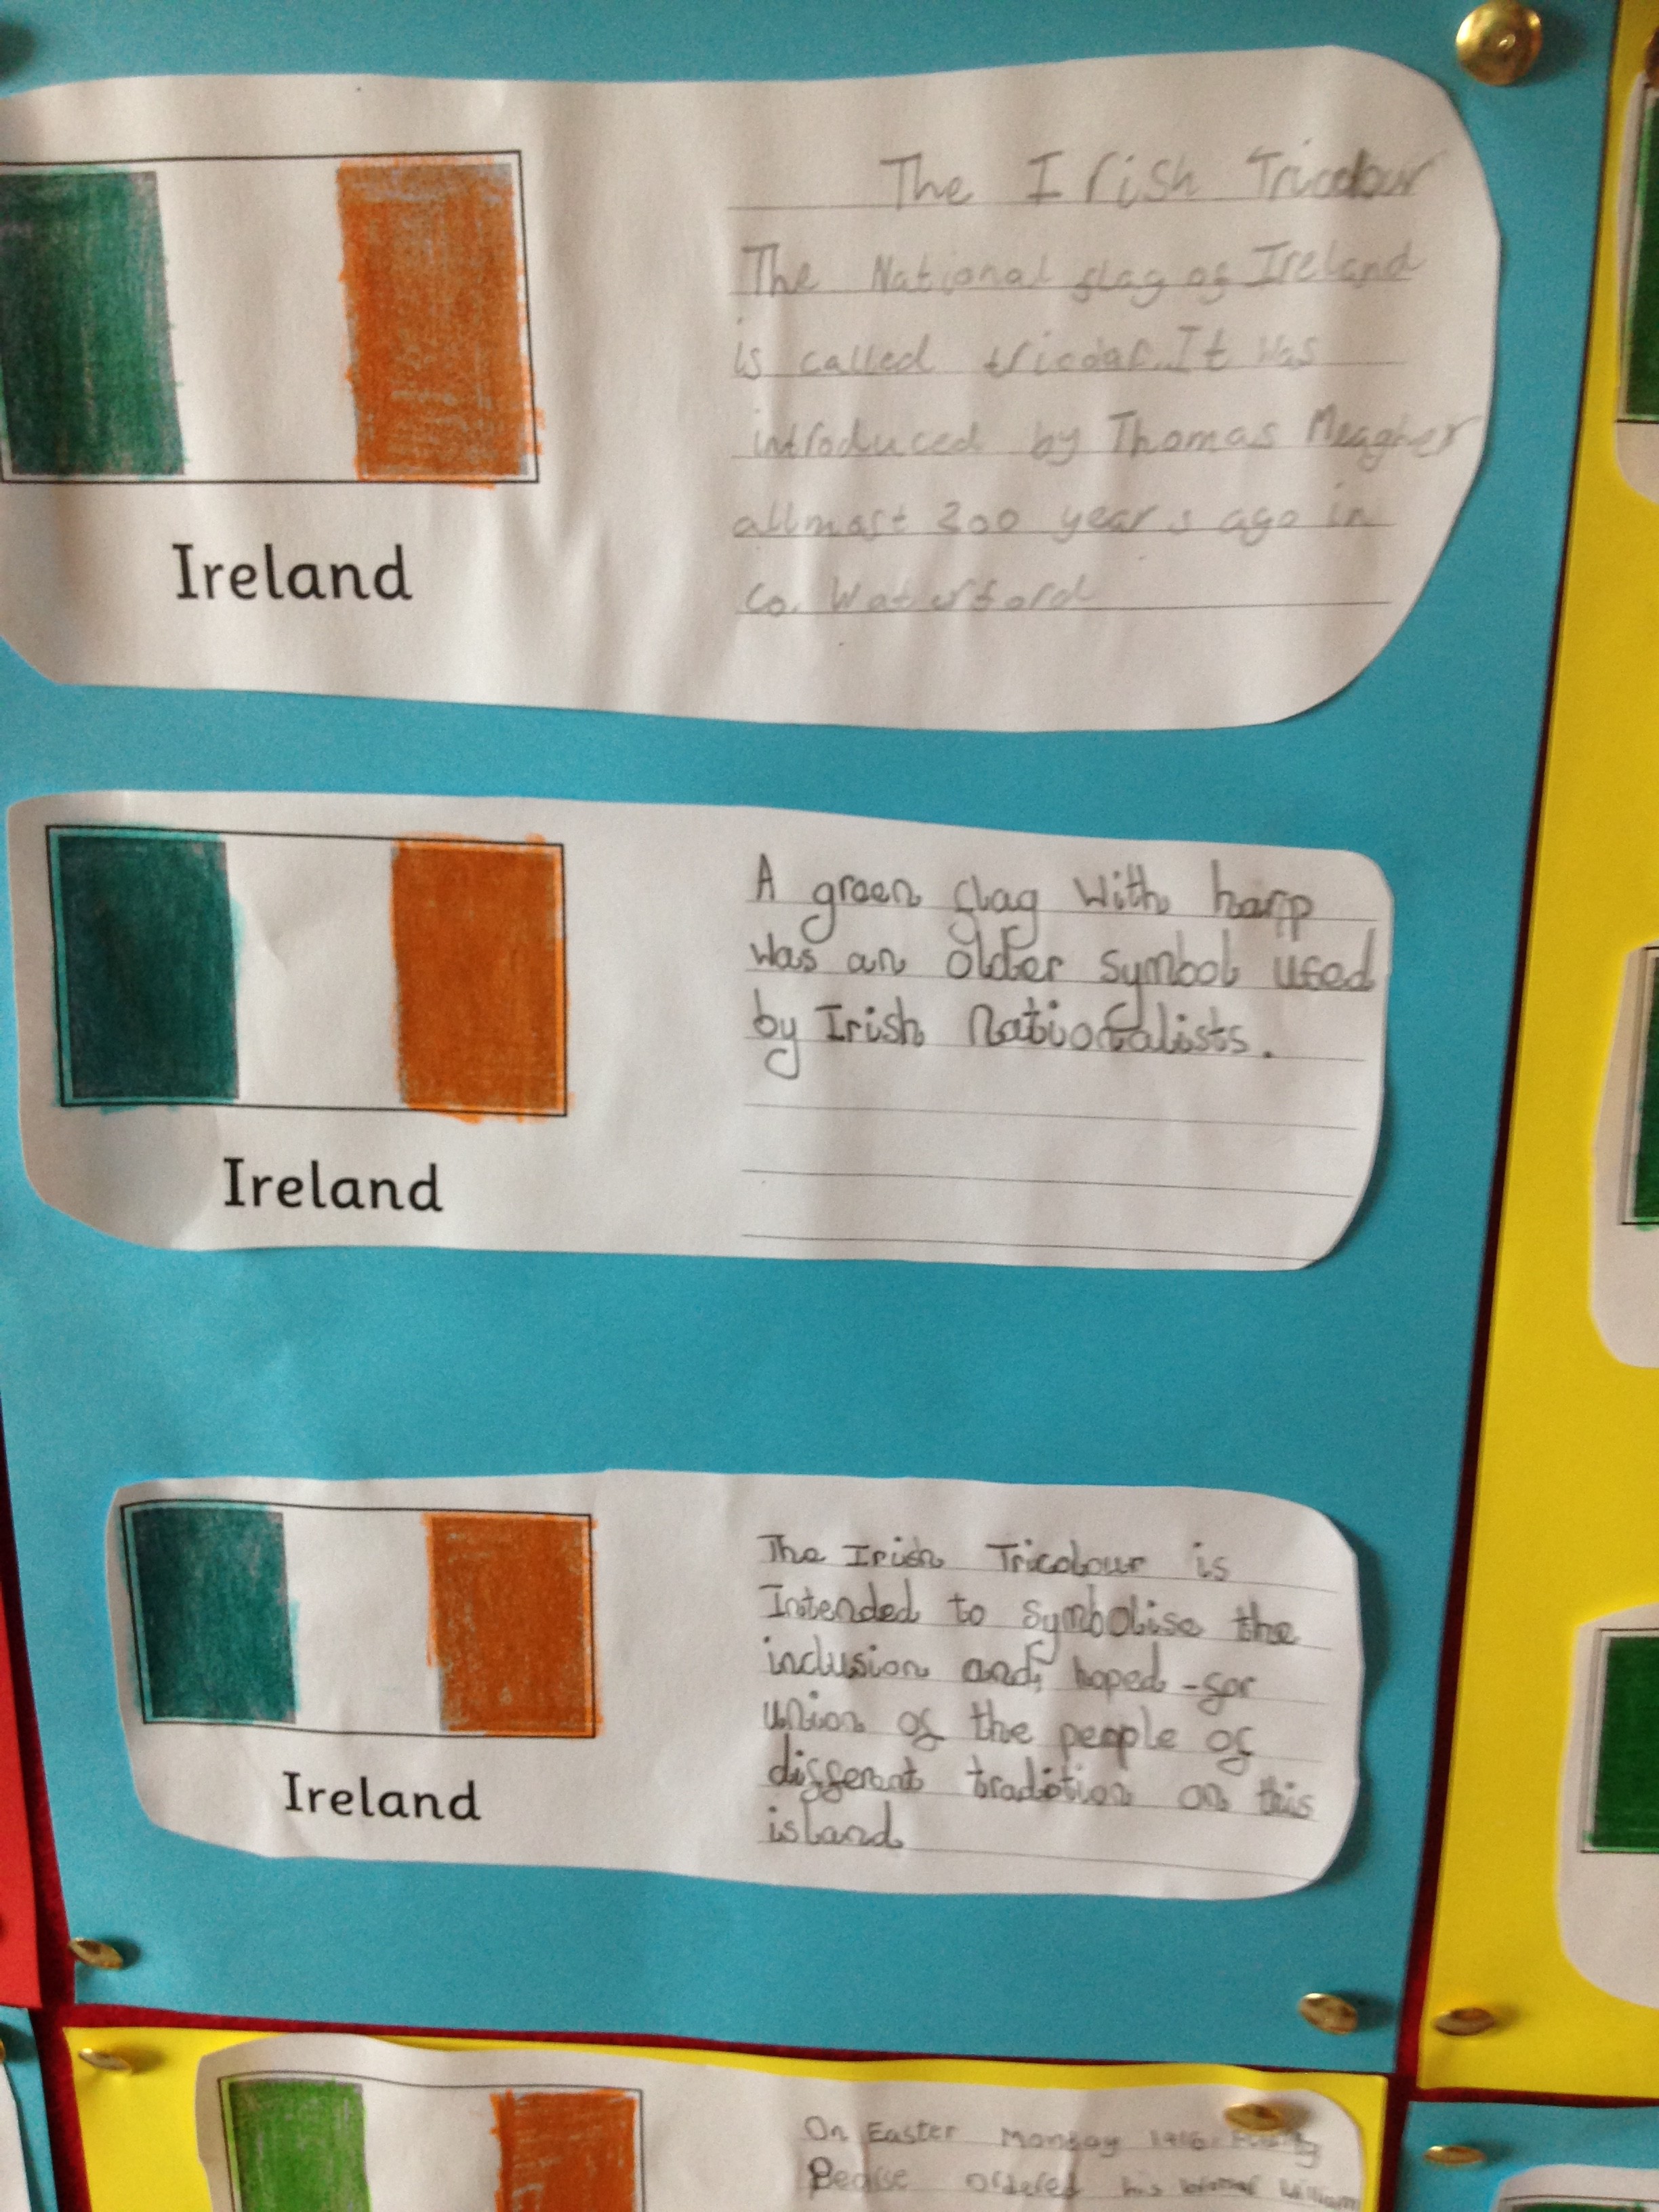 The Irish Tricolour
The National flag of Ireland
is called tricolar. It was
introduced by Thomas Meagher
allmost 200 years ago in
co. Waterford
Ireland
A green flag With harp
was an older symbol used
by Irish Nationalists.
Ireland
The Irish Tricolour is
Intended to symbolise the
inclusion and, hoped-for
union of the people of
different tradition on this
island
Ireland
On Easter Monday 1916
Pearse ordered his William